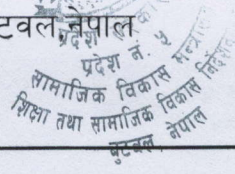 टवल, नेपाल
प्रदेश
प्रदेश नं. ५
सामाजिक विकास मन्त्रालय
शिक्षा तथा सामाजिक विकास निर्देशन
बुटवल नेपाल